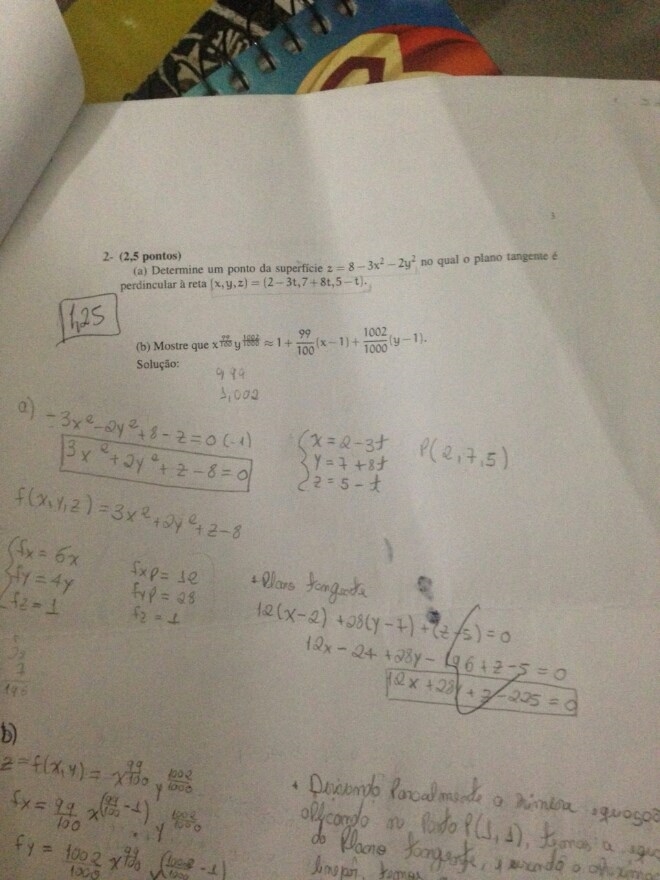 3
2- (2,5 pontos)
(a) Determine um ponto da superfície z = 8 − 3x² − 2y² no qual o plano tangente é
perdincular à reta (x, y, z) = (2 − 3t, 7 + 8t, 5 − t).
1,25
(b) Mostre que x^{99/100} y^{1002/1000} ≈ 1 + 99/100 (x − 1) + 1002/1000 (y − 1).
Solução:
1,002
a) −3x² − 2y² + 8 − z = 0 (-1)
3x² + 2y² + z − 8 = 0
{ x = 2 − 3t
y = 7 + 8t
z = 5 − t
P(2,7,5)
f(x,y,z) = 3x² + 2y² + z − 8
{ fx = 6x
fy = 4y
fz = 1
fxp = 12
fyp = 28
fz = 1
• Plano tangente
12(x−2) + 28(y−7) + (z−5) = 0
12x − 24 + 28y − 196 + z − 5 = 0
12x + 28y + z − 225 = 0
b)
z = f(x,y) = x^{99/100} y^{1002/1000}
fx = 99/100 x^{(99/100 − 1)} . y^{1002/1000}
fy = 1002/1000 x^{99/100} y^{(1002/1000 − 1)}
Parcialmente a
Ponto P(1,1), temos a
do Plano tangente, e
temos a